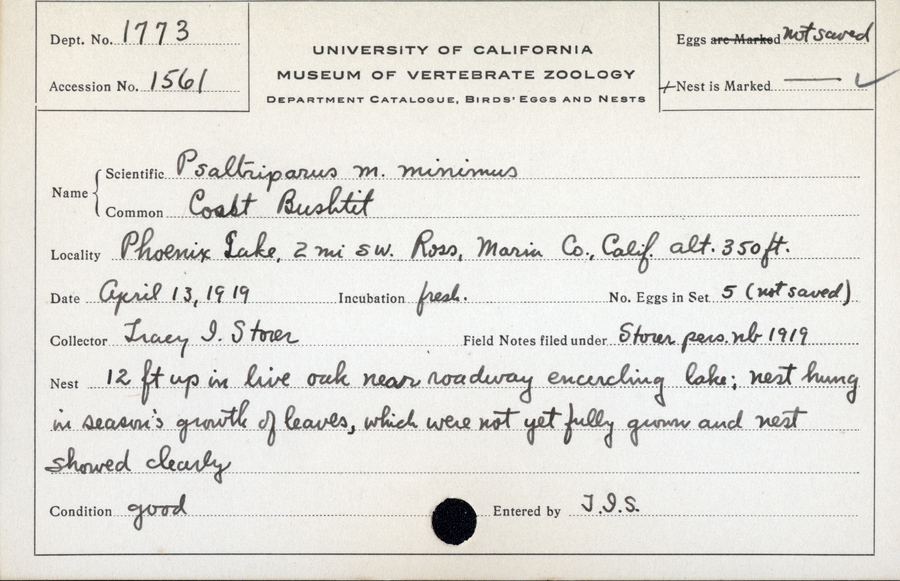 Dept. No. 1773
Accession No. 1561
UNIVERSITY OF CALIFORNIA
MUSEUM OF VERTEBRATE ZOOLOGY
DEPARTMENT CATALOGUE, BIRDS' EGGS AND NESTS
Eggs are Marked not saved
Nest is Marked —— ✓
Name
Scientific Psaltriparus m. minimus
Common Coast Bushtit
Locality Phoenix Lake, 2 mi sw. Ross, Marin Co., Calif. alt. 350 ft.
Date April 13, 1919 Incubation fresh. No. Eggs in Set 5 (not saved)
Collector Tracy I. Storer Field Notes filed under Storer pers. nb 1919
Nest 12 ft up in live oak near roadway encircling lake; nest hung
in season's growth of leaves, which were not yet fully grown and nest
showed clearly
Condition good Entered by T.I.S.